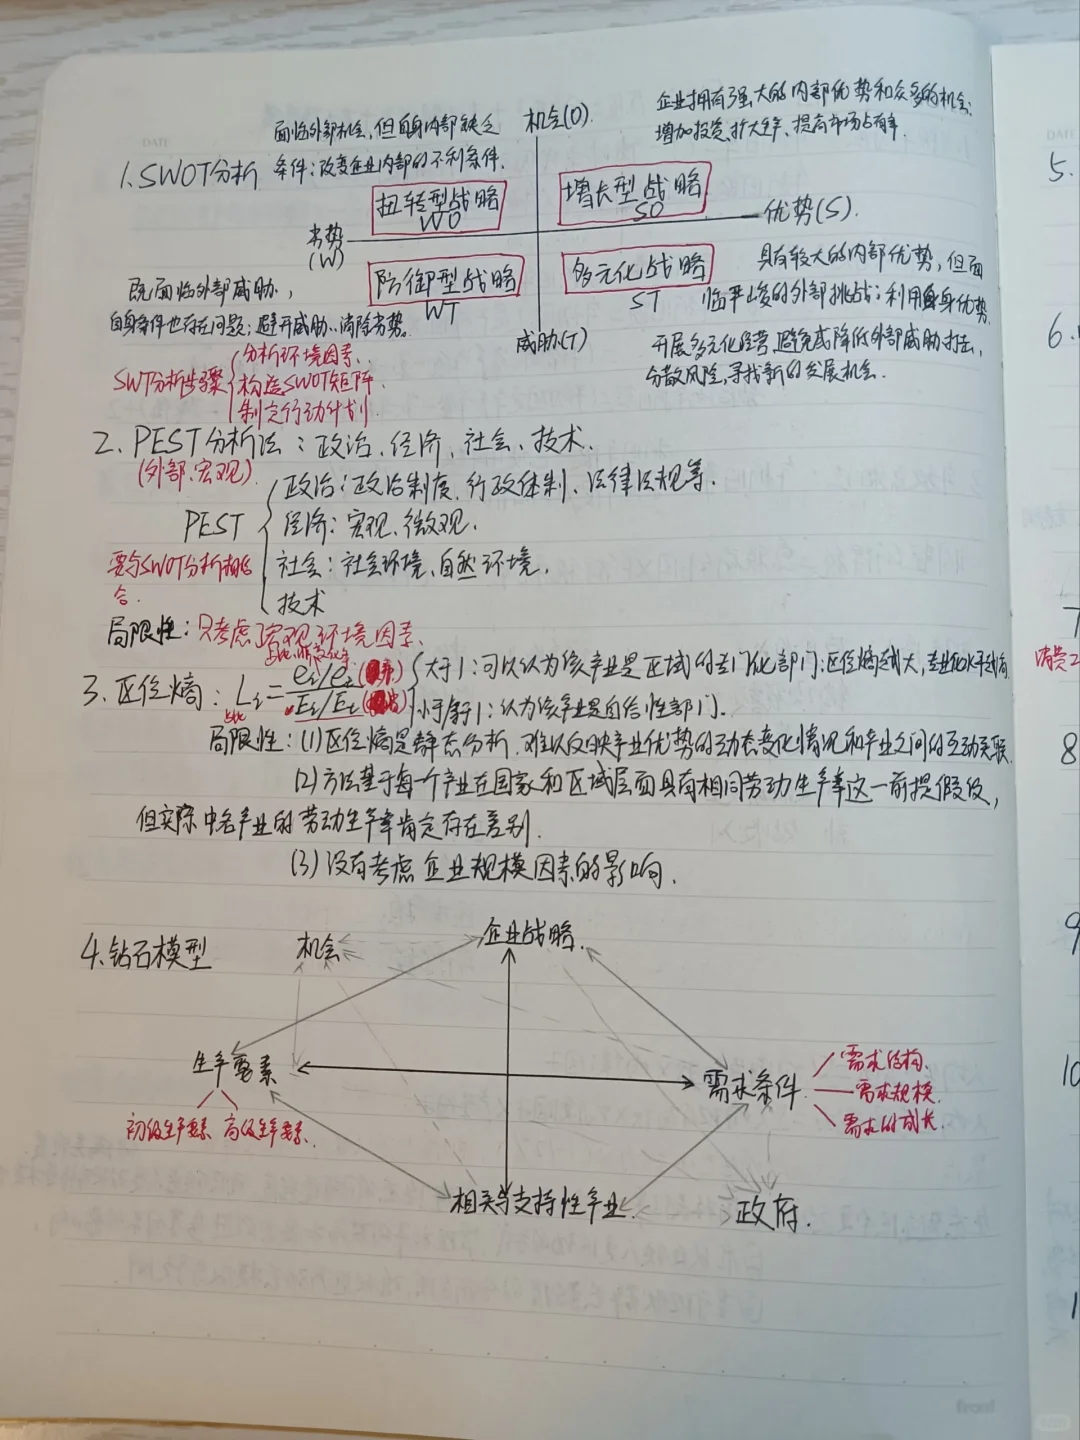 面临外部机会,但自身内部缺乏
条件:改变企业内部的不利条件.
机会(O).
企业拥有强大的内部优势和众多的机会:
增加投资、扩大生产、提高市场占有率.
1.SWOT分析
扭转型战略
WO
增长型战略
SO
优势(S).
劣势
(W)
防御型战略
WT
多元化战略
ST
既面临外部威胁,
自身条件也存在问题:避开威胁、消除劣势.
威胁(T)
具有较大的内部优势,但面
临严峻的外部挑战:利用自身优势
开展多元化经营,避免或降低外部威胁打击,
分散风险,寻找新的发展机会.
SWT分析步骤
分析环境因素.
构造SWOT矩阵
制定行动计划.
2.PEST分析法:政治、经济、社会、技术.
(外部、宏观)
PEST
政治:政治制度、行政体制、法律法规等.
经济:宏观、微观.
社会:社会环境、自然环境.
技术
要与SWOT分析相结
合.
局限性:只考虑了宏观环境因素.
3.区位熵:
大于1:可以认为该产业是区域的专门化部门;区位熵越大,专业化水平越高
小于/等于1:认为该产业是自给性部门.
局限性:(1)区位熵是静态分析,难以反映产业优势的动态变化情况和产业之间的互动关联.
(2)方法基于每一个产业在国家和区域层面具有相同劳动生产率这一前提假设,
但实际中各产业的劳动生产率肯定存在差别.
(3)没有考虑企业规模因素的影响.
4.钻石模型
机会
企业战略.
生产要素
初级生产要素
高级生产要素.
需求条件
需求结构.
需求规模.
需求的成长.
相关与支持性产业.
政府.
5.
6.
8
9
10